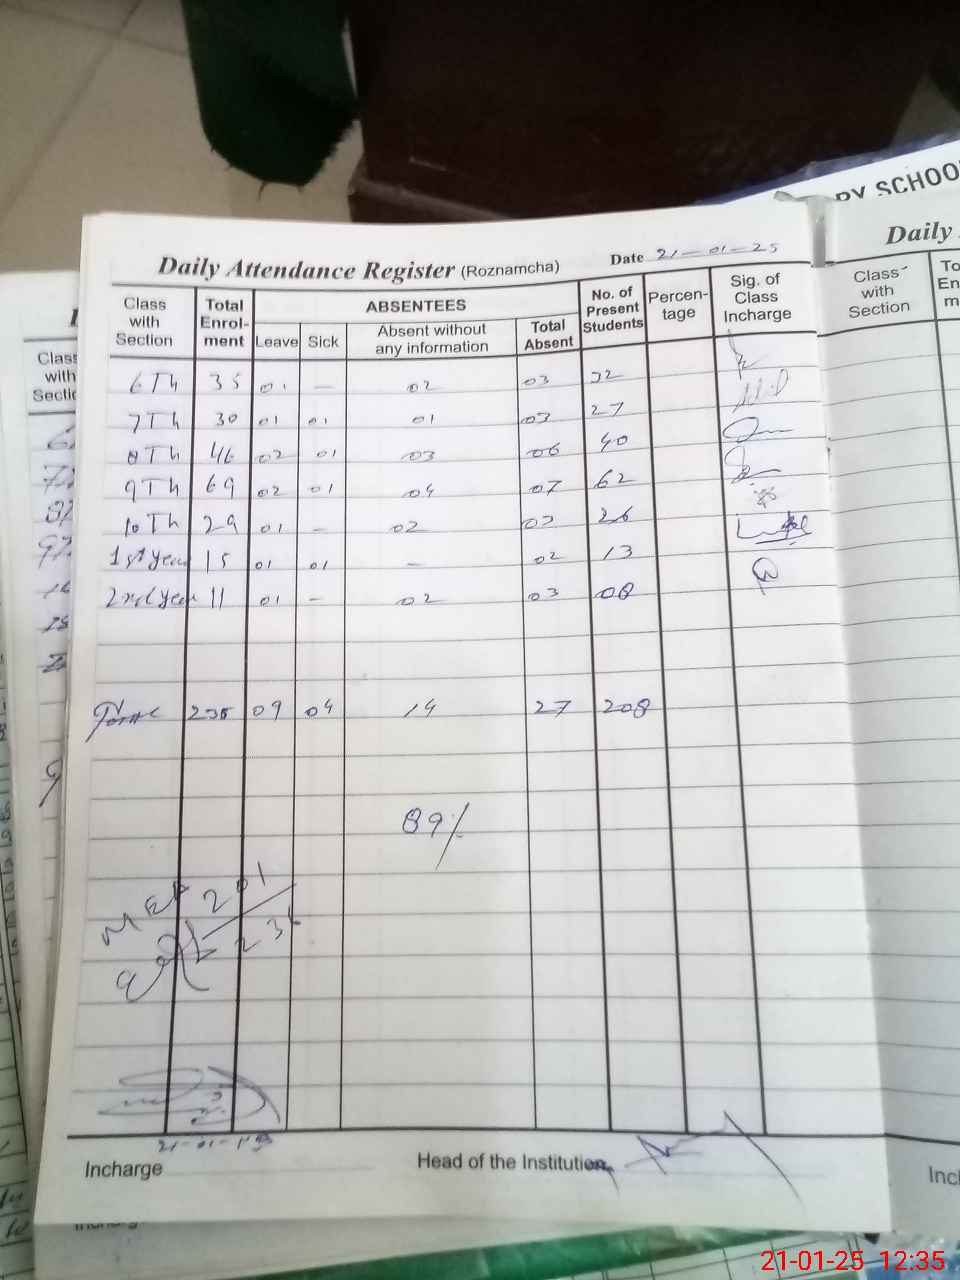 RY SCHOO
Daily Attendance Register (Roznamcha) Date 21-01-25
Daily
Class with Section Total Enrol-ment ABSENTEES Leave Sick Absent without any information Total Absent No. of Present Students Percen-tage Sig. of Class Incharge
Class with Section
6Th 35 01 - 02 03 32
7Th 30 01 01 01 03 27
8Th 46 02 01 03 06 40
9Th 69 02 01 04 07 62
10Th 29 01 - 02 03 26
1st year 15 01 01 - 02 13
2nd year 11 01 - 02 03 08
Total 235 09 04 14 27 208
89%
MEA 201
21-01-
Incharge Head of the Institution
21-01-25 12:35